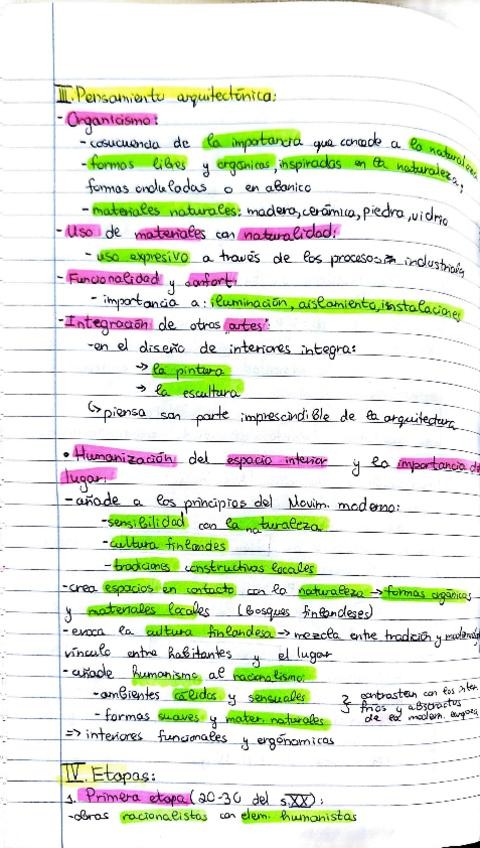 III. Pensamiento arquitectónica:
- Organicismo:
- cosucuencia de la importancia que concede a la naturaleza
- formas libres y orgánicas, inspiradas en la naturaleza;
formas onduladas o en abanico
- materiales naturales: madera, cerámica, piedra, vidrio
- Uso de materiales con naturalidad:
- uso expresivo a través de los procesos industriales
- Funcionalidad y confort:
- importancia a: iluminación, aislamiento, instalaciones
- Integración de otras artes:
- en el diseño de interiores integra:
→ la pintura
→ la escultura
↳ piensa son parte imprescindible de la arquitectura
• Humanización del espacio interior y la importancia del
lugar:
- añade a los principios del Movim. moderno:
- sensibilidad con la naturaleza
- cultura finlandes
- tradiciones constructivas locales
- crea espacios en contacto con la naturaleza → formas orgánicas
y materiales locales (Bosques finlandeses)
- evoca la cultura finlandesa → mezcla entre tradición y modernidad
vínculo entre habitantes y el lugar
- añade humanismo al racionalismo:
- ambientes cálidos y sensuales
- formas suaves y mater. naturales
} contrastan con los inter.
fríos y abstractos
de la modern. europea
⇒ interiores funcionales y ergónomicas
IV. Etapas:
1. Primera etapa (20-30 del s.XX):
- obras racionalistas con elem. humanistas